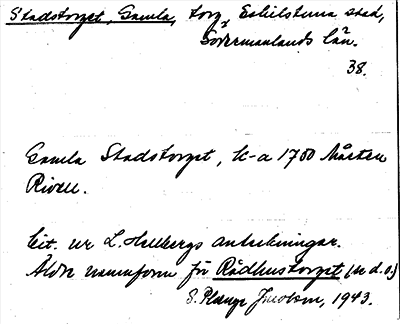 Stadstorget, Gamla, torg, Eskilstuna stad,
Södermanlands län.
38.
Gamla Stadstorget, k-a 1780 Mårten
Rivell.
Cit. ur L. Hellbergs anteckningar.
Äldre namnform för Rådhustorget (se d.o.)
S. Plange Jacobson, 1943.